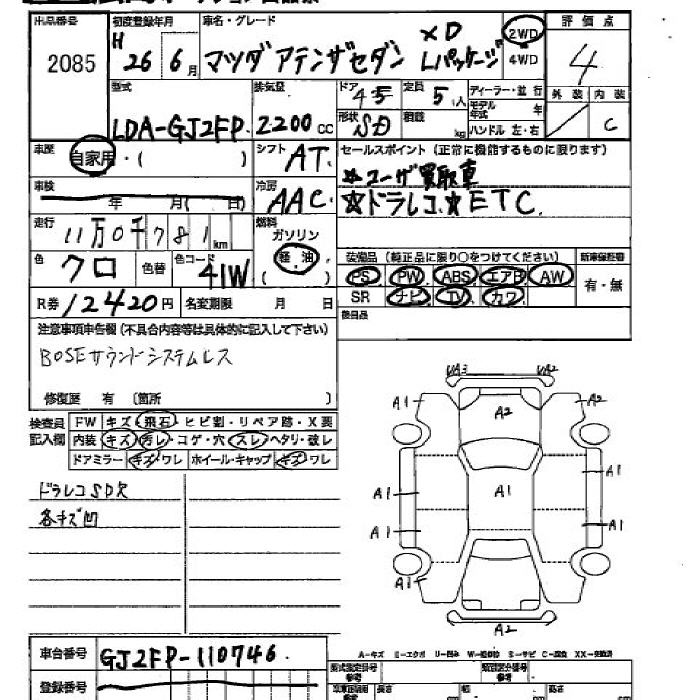 出品番号 初度登録年月 車名・グレード 評価点
2085 H 26 6月 マツダ アテンザセダン XD Lパッケージ 2WD 4WD 4
型式 排気量 ドア 定員 ディーラー・並行 外装 内装
LDA-GJ2FP 2200cc 4 5 5人 モデル年式 年
形状 SD 積載 kg ハンドル 左・右 C
車歴 自家用・( ) シフト AT セールスポイント(正常に機能するものに限ります)
☆ユーザー買取車
車検 年 月( 日) 冷房 AAC ☆ドラレコ ☆ETC
走行 11万0千781km 燃料 ガソリン 軽油 ( )
装備品(純正品に限り○をつけてください) 新車保証書
色 クロ 色替 色コード 41W PS PW ABS エアB AW 有・無
SR ナビ TV カワ
R券 12420円 名変期限 月 日 後日品
注意事項申告欄(不具合内容等は具体的に記入して下さい)
BOSEサウンドシステムレス
修復歴 有 (箇所 )
検査員記入欄 FW キズ・飛石・ヒビ割・リペア跡・X要
内装 キズ・汚レ・コゲ・穴・スレ・ヘタリ・破レ
ドアミラー キズ・ワレ ホイール・キャップ キズ・ワレ
ドラレコSD欠
各キズ凹
UA3 UA2
A1 A2 A2
A1 A1 A1
A1 A1
A1
A2
A-キズ
車台番号 GJ2FP-110746
登録番号
型式指定番号 参考 類別区分番号 参考
長さ cm 幅 cm 高さ